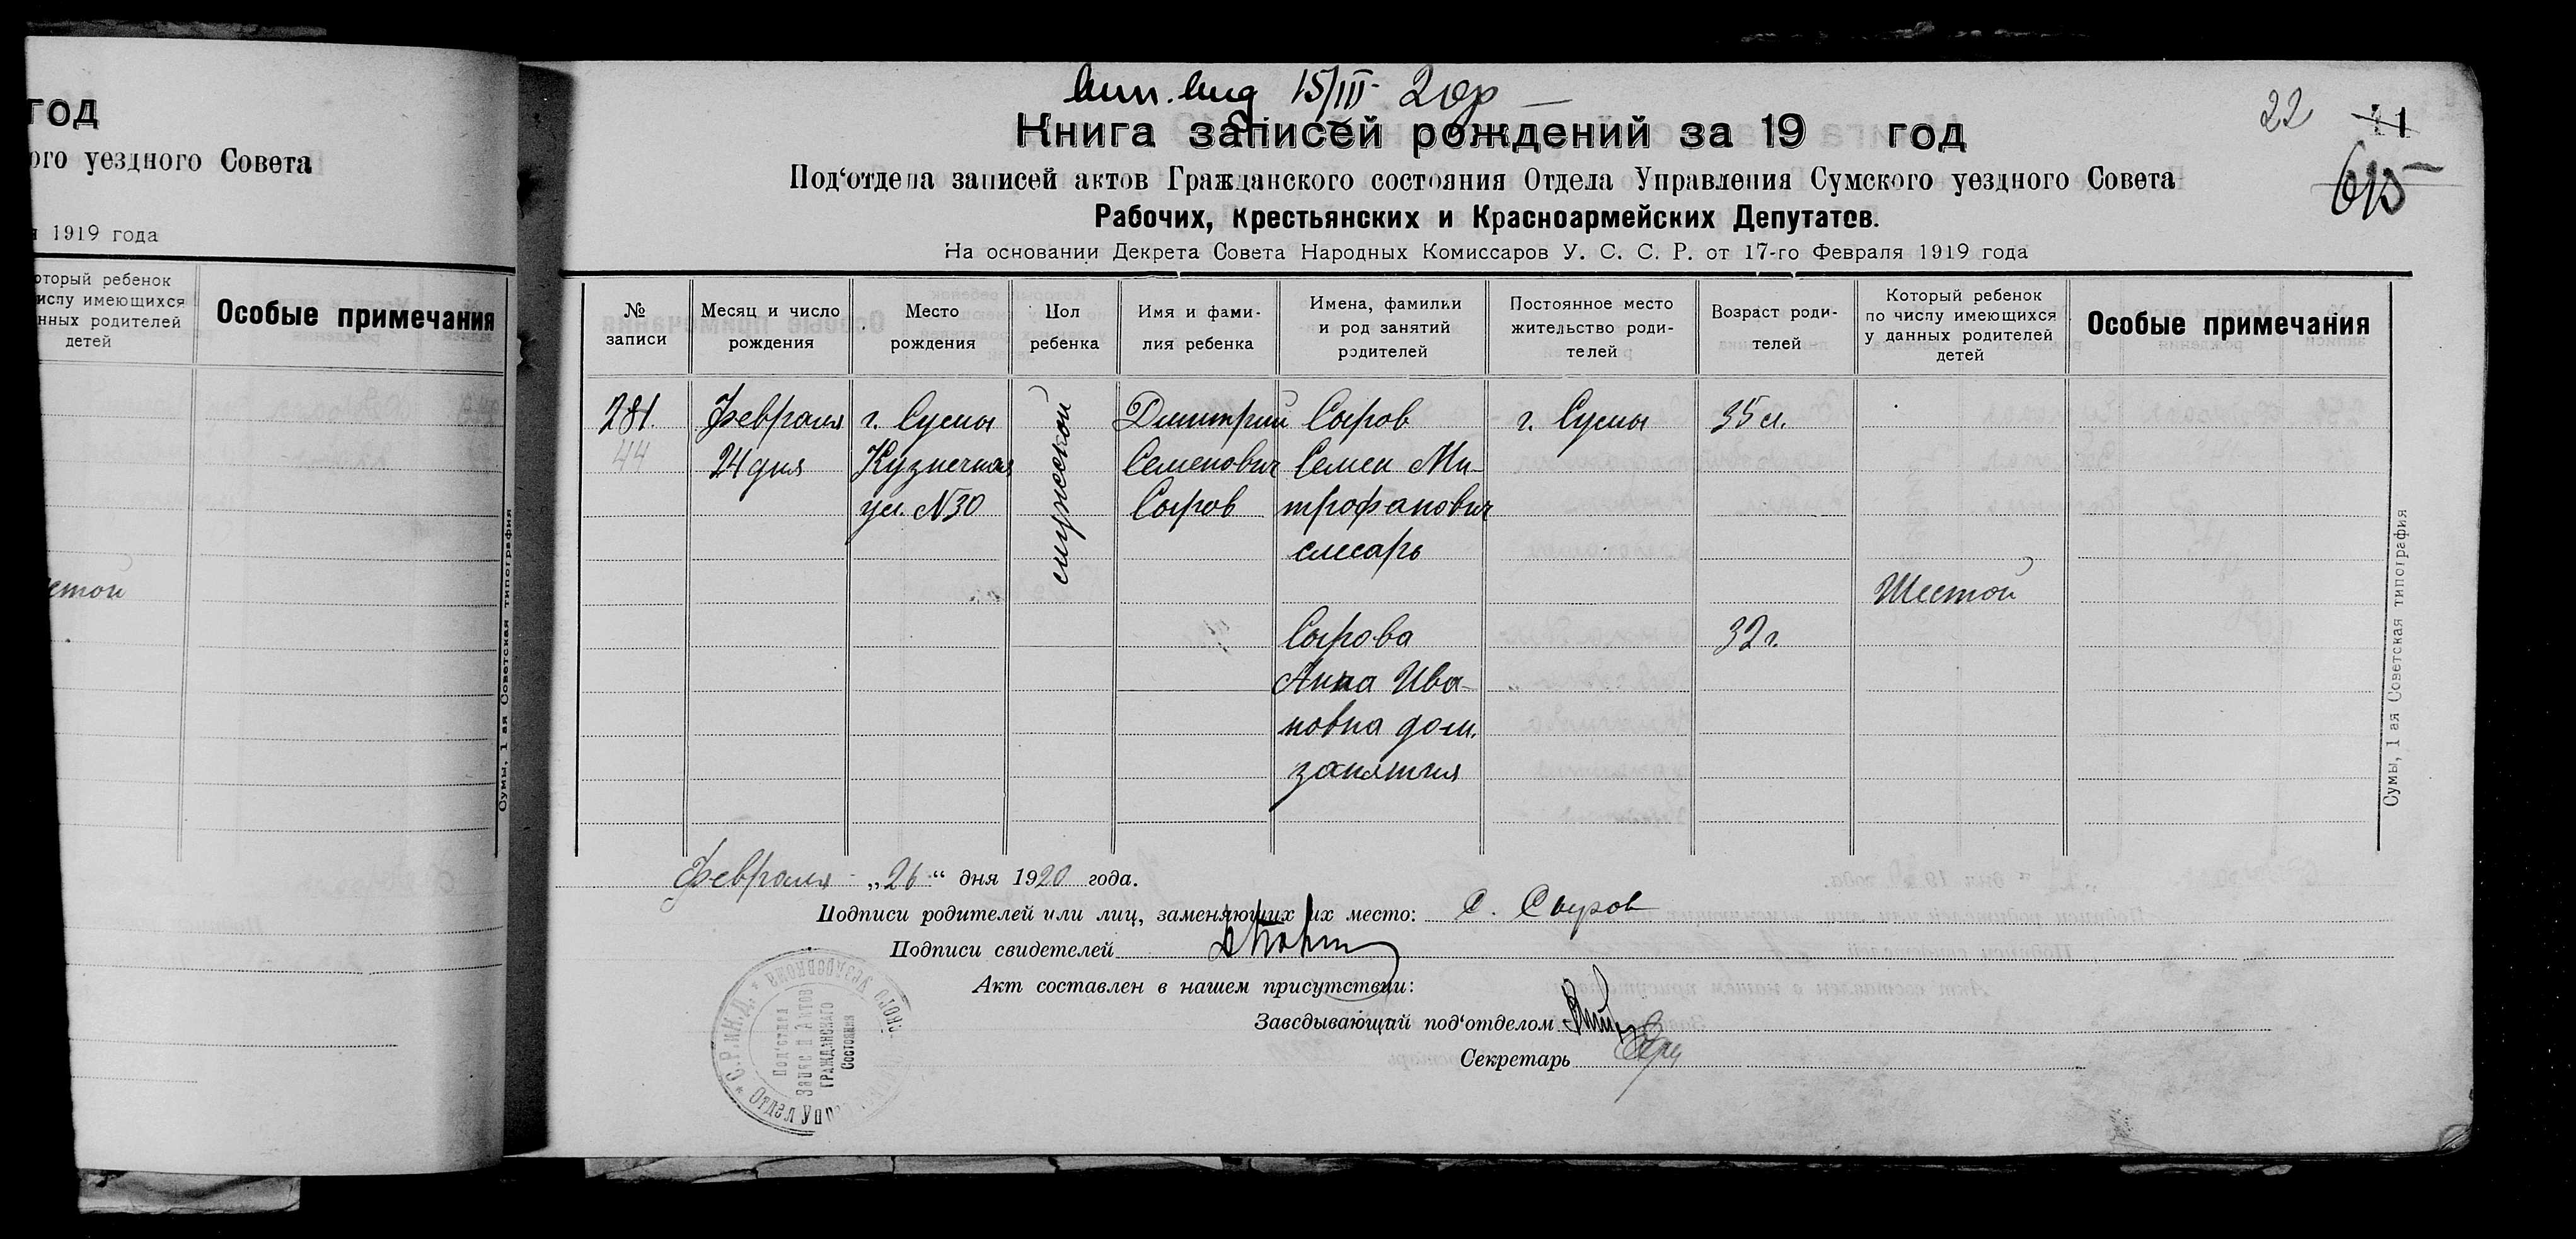 год
ого уездного Совета
я 1919 года
оторый ребенок
ислу имеющихся
нных родителей
детей
Особые примечания
естой
Сумы, 1 ая Советская типография
15/III 20р
22
1
615
Книга записей рождений за 19 год
Под‘отдела записей актов Гражданского состояния Отдела Управления Сумского уездного Совета
Рабочих, Крестьянских и Красноармейских Депутатов.
На основании Декрета Совета Народных Комиссаров У. С. С. Р. от 17-го Февраля 1919 года
№
записи
Месяц и число
рождения
Место
рождения
Пол
ребенка
Имя и фами-
лия ребенка
Имена, фамилии
и род занятий
родителей
Постоянное место
жительство роди-
телей
Возраст роди-
телей
Который ребенок
по числу имеющихся
у данных родителей
детей
Особые примечания
281.
44
Февраля
24 дня
г. Сумы
Кузнечная
ул. №30
мужеской
Димитрий
Семенович
Сыров
Сыров
Семен Ми-
трофанович
слесарь
Сырова
Анна Ива-
новна дом.
занятия
г. Сумы
35 л.
32 г.
Шестой
Сумы, 1 ая Советская типография
Февраля „26“ дня 1920 года.
Подписи родителей или лиц, заменяющих их место: С. Сыров
Подписи свидетелей
Акт составлен в нашем присутствии:
Заведывающий под‘отделом
Секретарь
* С.Р. и К.Д. *
Отдел Упр
Под‘отдел
Записи Актов
Гражданского
Состояния